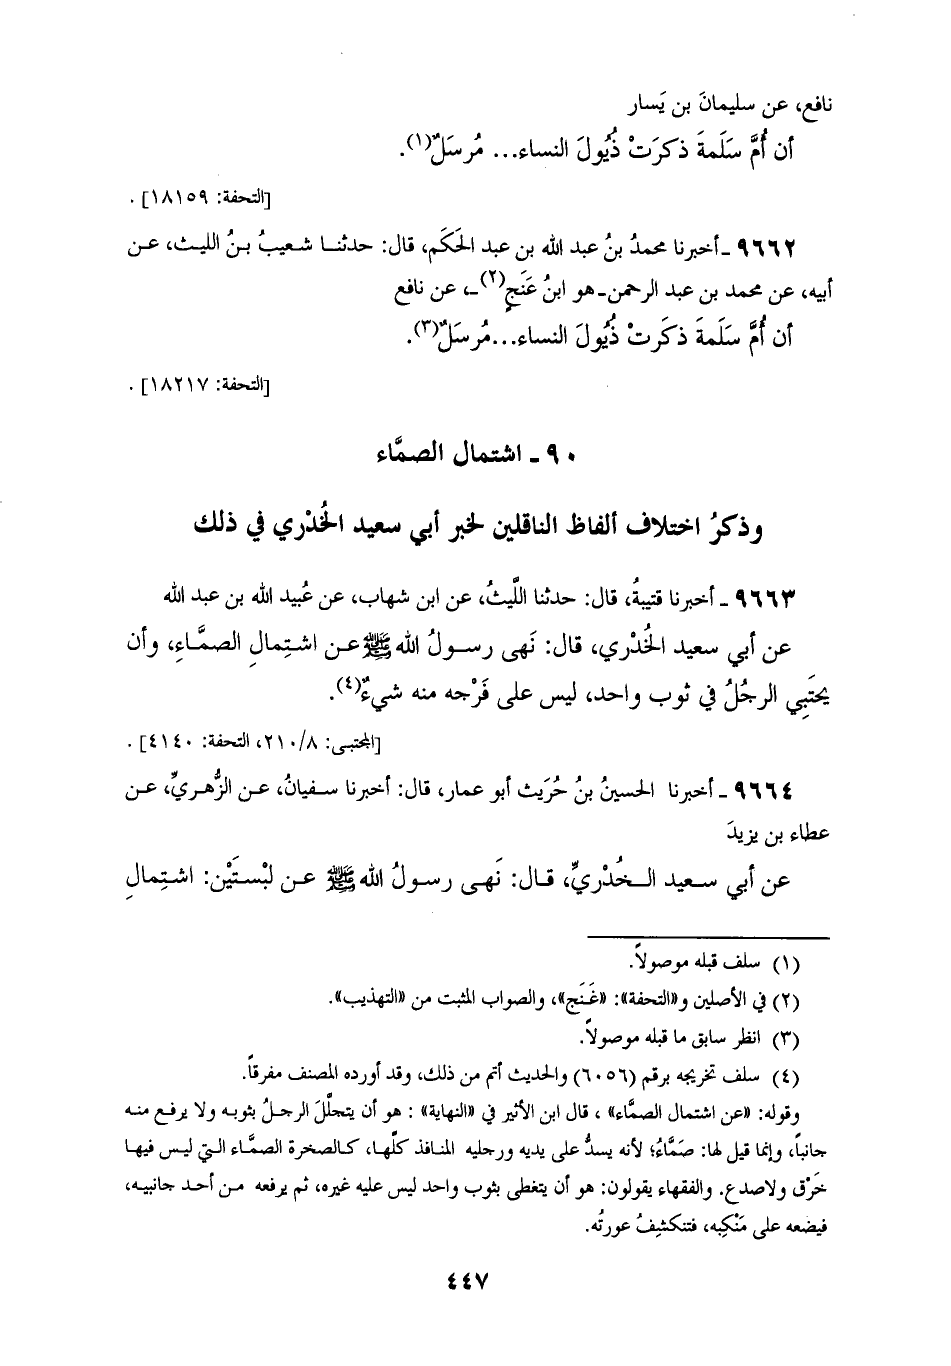 نافع، عن سليمانَ بن يَسار
أن أُمَّ سَلَمةَ ذكرَتْ ذُيُولَ النساء... مُرسَلٌ(١).
[التحفة: ١٨١٥٩] .
٩٦٦٢ ـ أخبرنا محمدُ بنُ عبد الله بن عبد الحَكَم، قال: حدثنا شعيبُ بنُ الليث، عن
أبيه، عن محمد بن عبد الرحمن ـ هو ابنُ عَنَجٍ(٢) ـ، عن نافع
أن أُمَّ سَلَمةَ ذكَرتْ ذُيُولَ النساء...مُرسَلٌ(٣).
[التحفة: ١٨٢١٧] .
٩٠ ـ اشتمال الصمَّاء
وذكرُ اختلاف ألفاظ الناقلين لخبر أبي سعيد الخُدْري في ذلك
٩٦٦٣ ـ أخبرنا قتيبةُ، قال: حدثنا اللَّيثُ، عن ابن شهاب، عن عُبيد الله بن عبد الله
عن أبي سعيد الخُدْري، قال: نَهى رسولُ الله ﷺ عن اشتِمالِ الصمَّاءِ، وأن
يحتَبِي الرجُلُ في ثوب واحد، ليس على فَرْجه منه شيءٌ(٤).
[المجتبى: ٢١٠/٨، التحفة: ٤١٤٠] .
٩٦٦٤ ـ أخبرنا الحسينُ بنُ حُرَيث أبو عمار، قال: أخبرنا سفيانُ، عن الزُّهريِّ، عن
عطاء بن يزيدَ
عن أبي سعيد الخُدْريِّ، قال: نَهى رسولُ الله ﷺ عن لبْستَيْن: اشتِمالِ
(١) سلف قبله موصولاً.
(٢) في الأصلين و«التحفة»: «غَنَج»، والصواب المثبت من «التهذيب».
(٣) انظر سابق ما قبله موصولاً.
(٤) سلف تخريجه برقم (٦٠٥٦) والحديث أتم من ذلك، وقد أورده المصنف مفرقاً.
وقوله: «عن اشتمال الصمَّاء» ، قال ابن الأثير في «النهاية» : هو أن يتجلَّلَ الرجلُ بثوبه ولا يرفع منه
جانباً، وإنما قيل لها: صَمَّاءُ؛ لأنه يسدُّ على يديه ورجليه المنافذ كلَّها، كالصخرة الصمَّاء التي ليس فيها
خَرْق ولاصدع. والفقهاء يقولون: هو أن يتغطى بثوب واحد ليس عليه غيره، ثم يرفعه من أحد جانبيه،
فيضعه على مَنْكِبه، فتنكشِفُ عورتُه.
٤٤٧